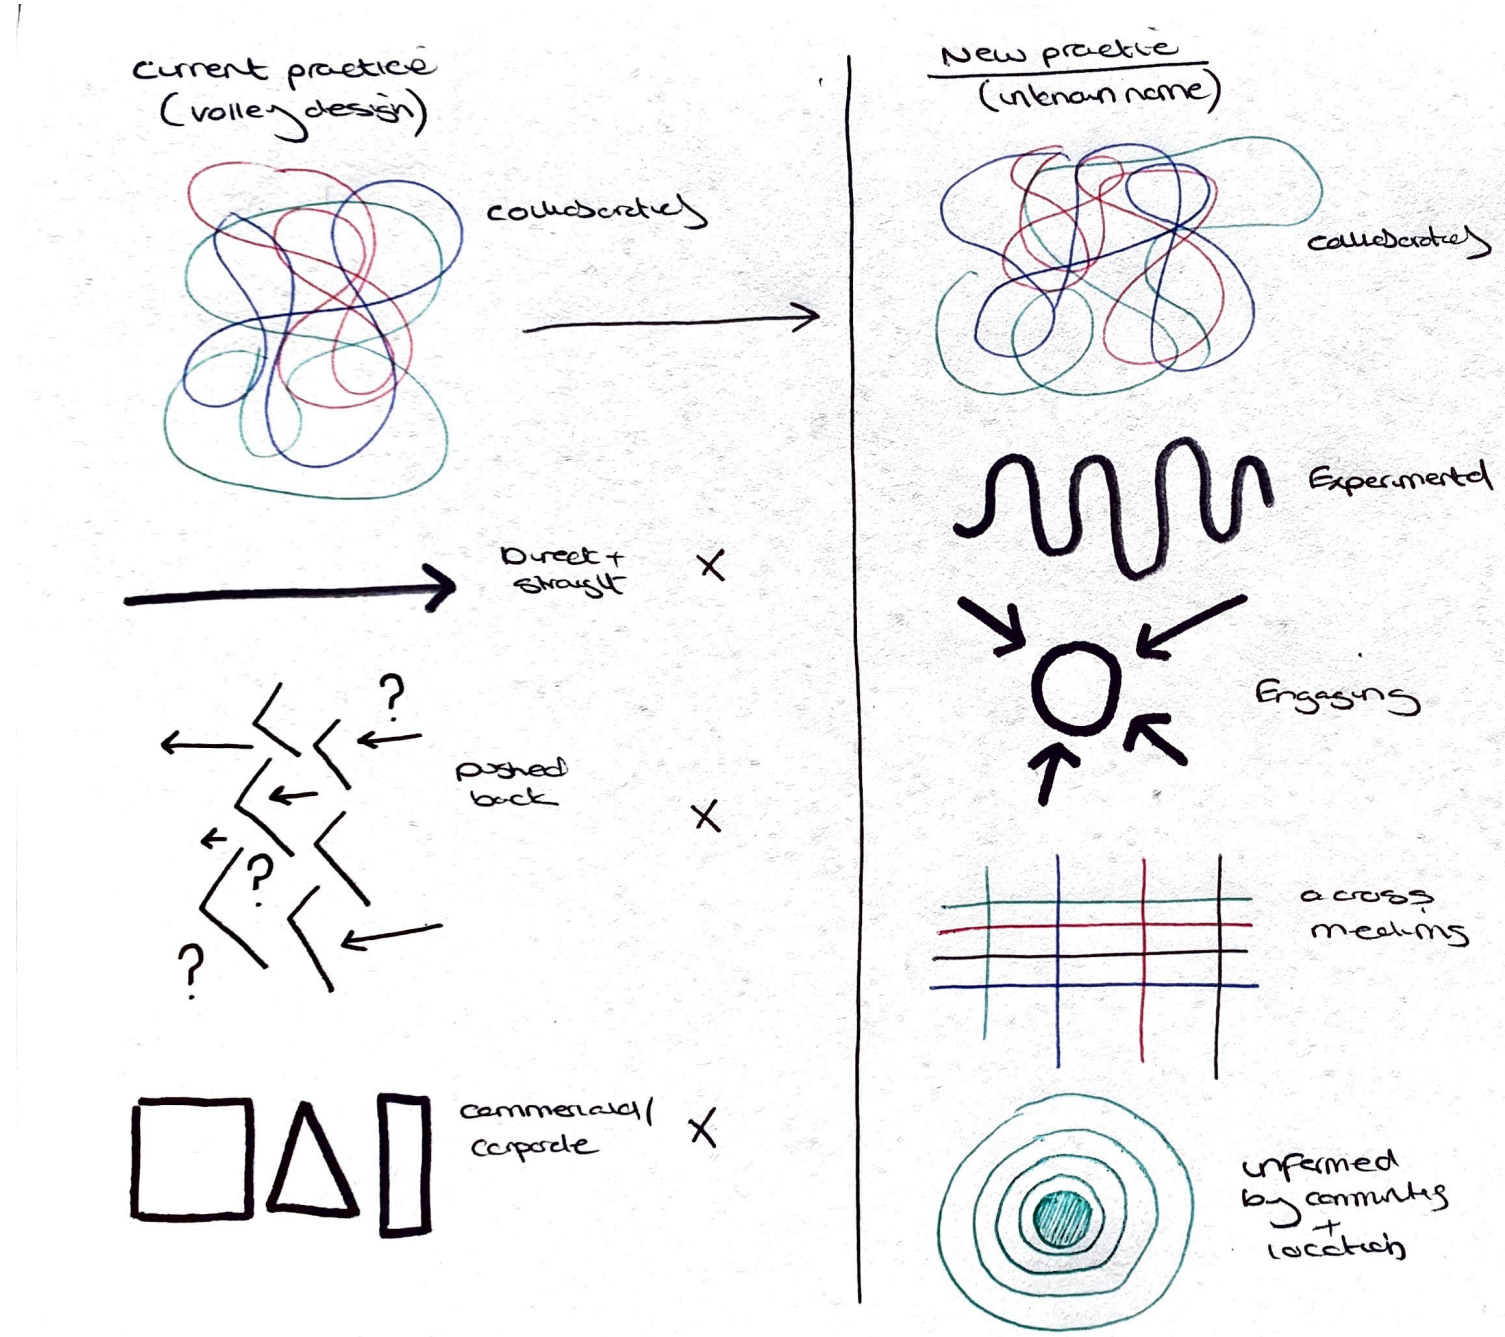 Current practice
(volley design)
collaborative
Direct +
straight
X
?
pushed
back
X
?
?
commercial/
corporate
X
New practice
(unknown name)
collaborative
Experimental
Engaging
across
meetings
informed
by communities
+
location